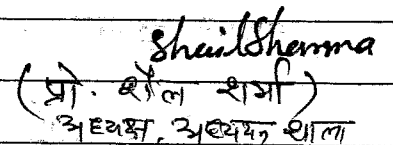 Shail Sharma
(प्रो. शैल शर्मा)
अध्यक्ष, अध्ययन शाला